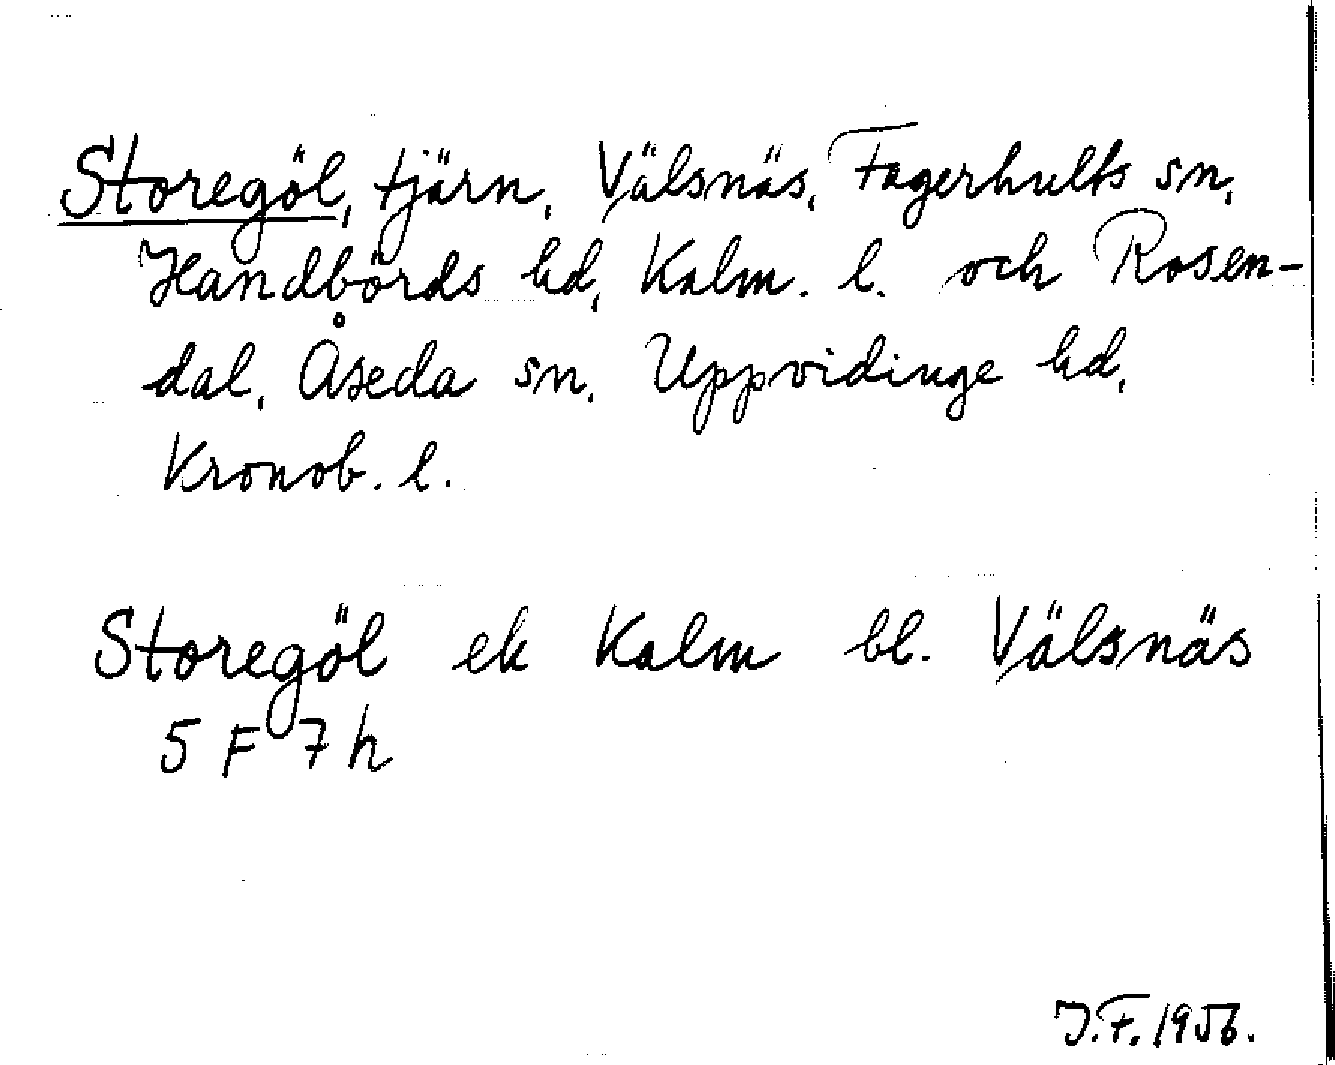 Storegöl, tjärn, Välsnäs, Fagerhults sn,
Handbörds hd, Kalm. l. och Rosen-
dal, Åseda sn. Uppvidinge hd,
Kronob. l.
Storegöl ek Kalm bl. Välsnäs
5 F 7 h
J.F. 1956.